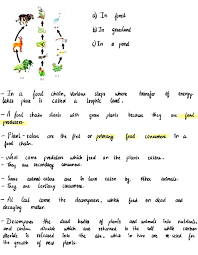 a) In forest
b) In grassland
c) In a pond
- In a food chain, various steps where transfer of energy
takes place is called a trophic level.
- A food chain starts with green plants because they are food
producers.
- Plant-eaters are the first or primary food consumers in a
food chain.
- Next come predators which feed on the plants eaters.
- They are secondary consumers.
- Some animal eaters are in turn eaten by other animals.
- They are tertiary consumers.
- At last come the decomposers, which feed on dead and
decaying matter.
- Decomposers the dead bodies of plants and animals into nutrients,
and carbon dioxide which are returned to the soil while carbon
dioxide is released into the air, which in turn are re-used for
the growth of new plants.